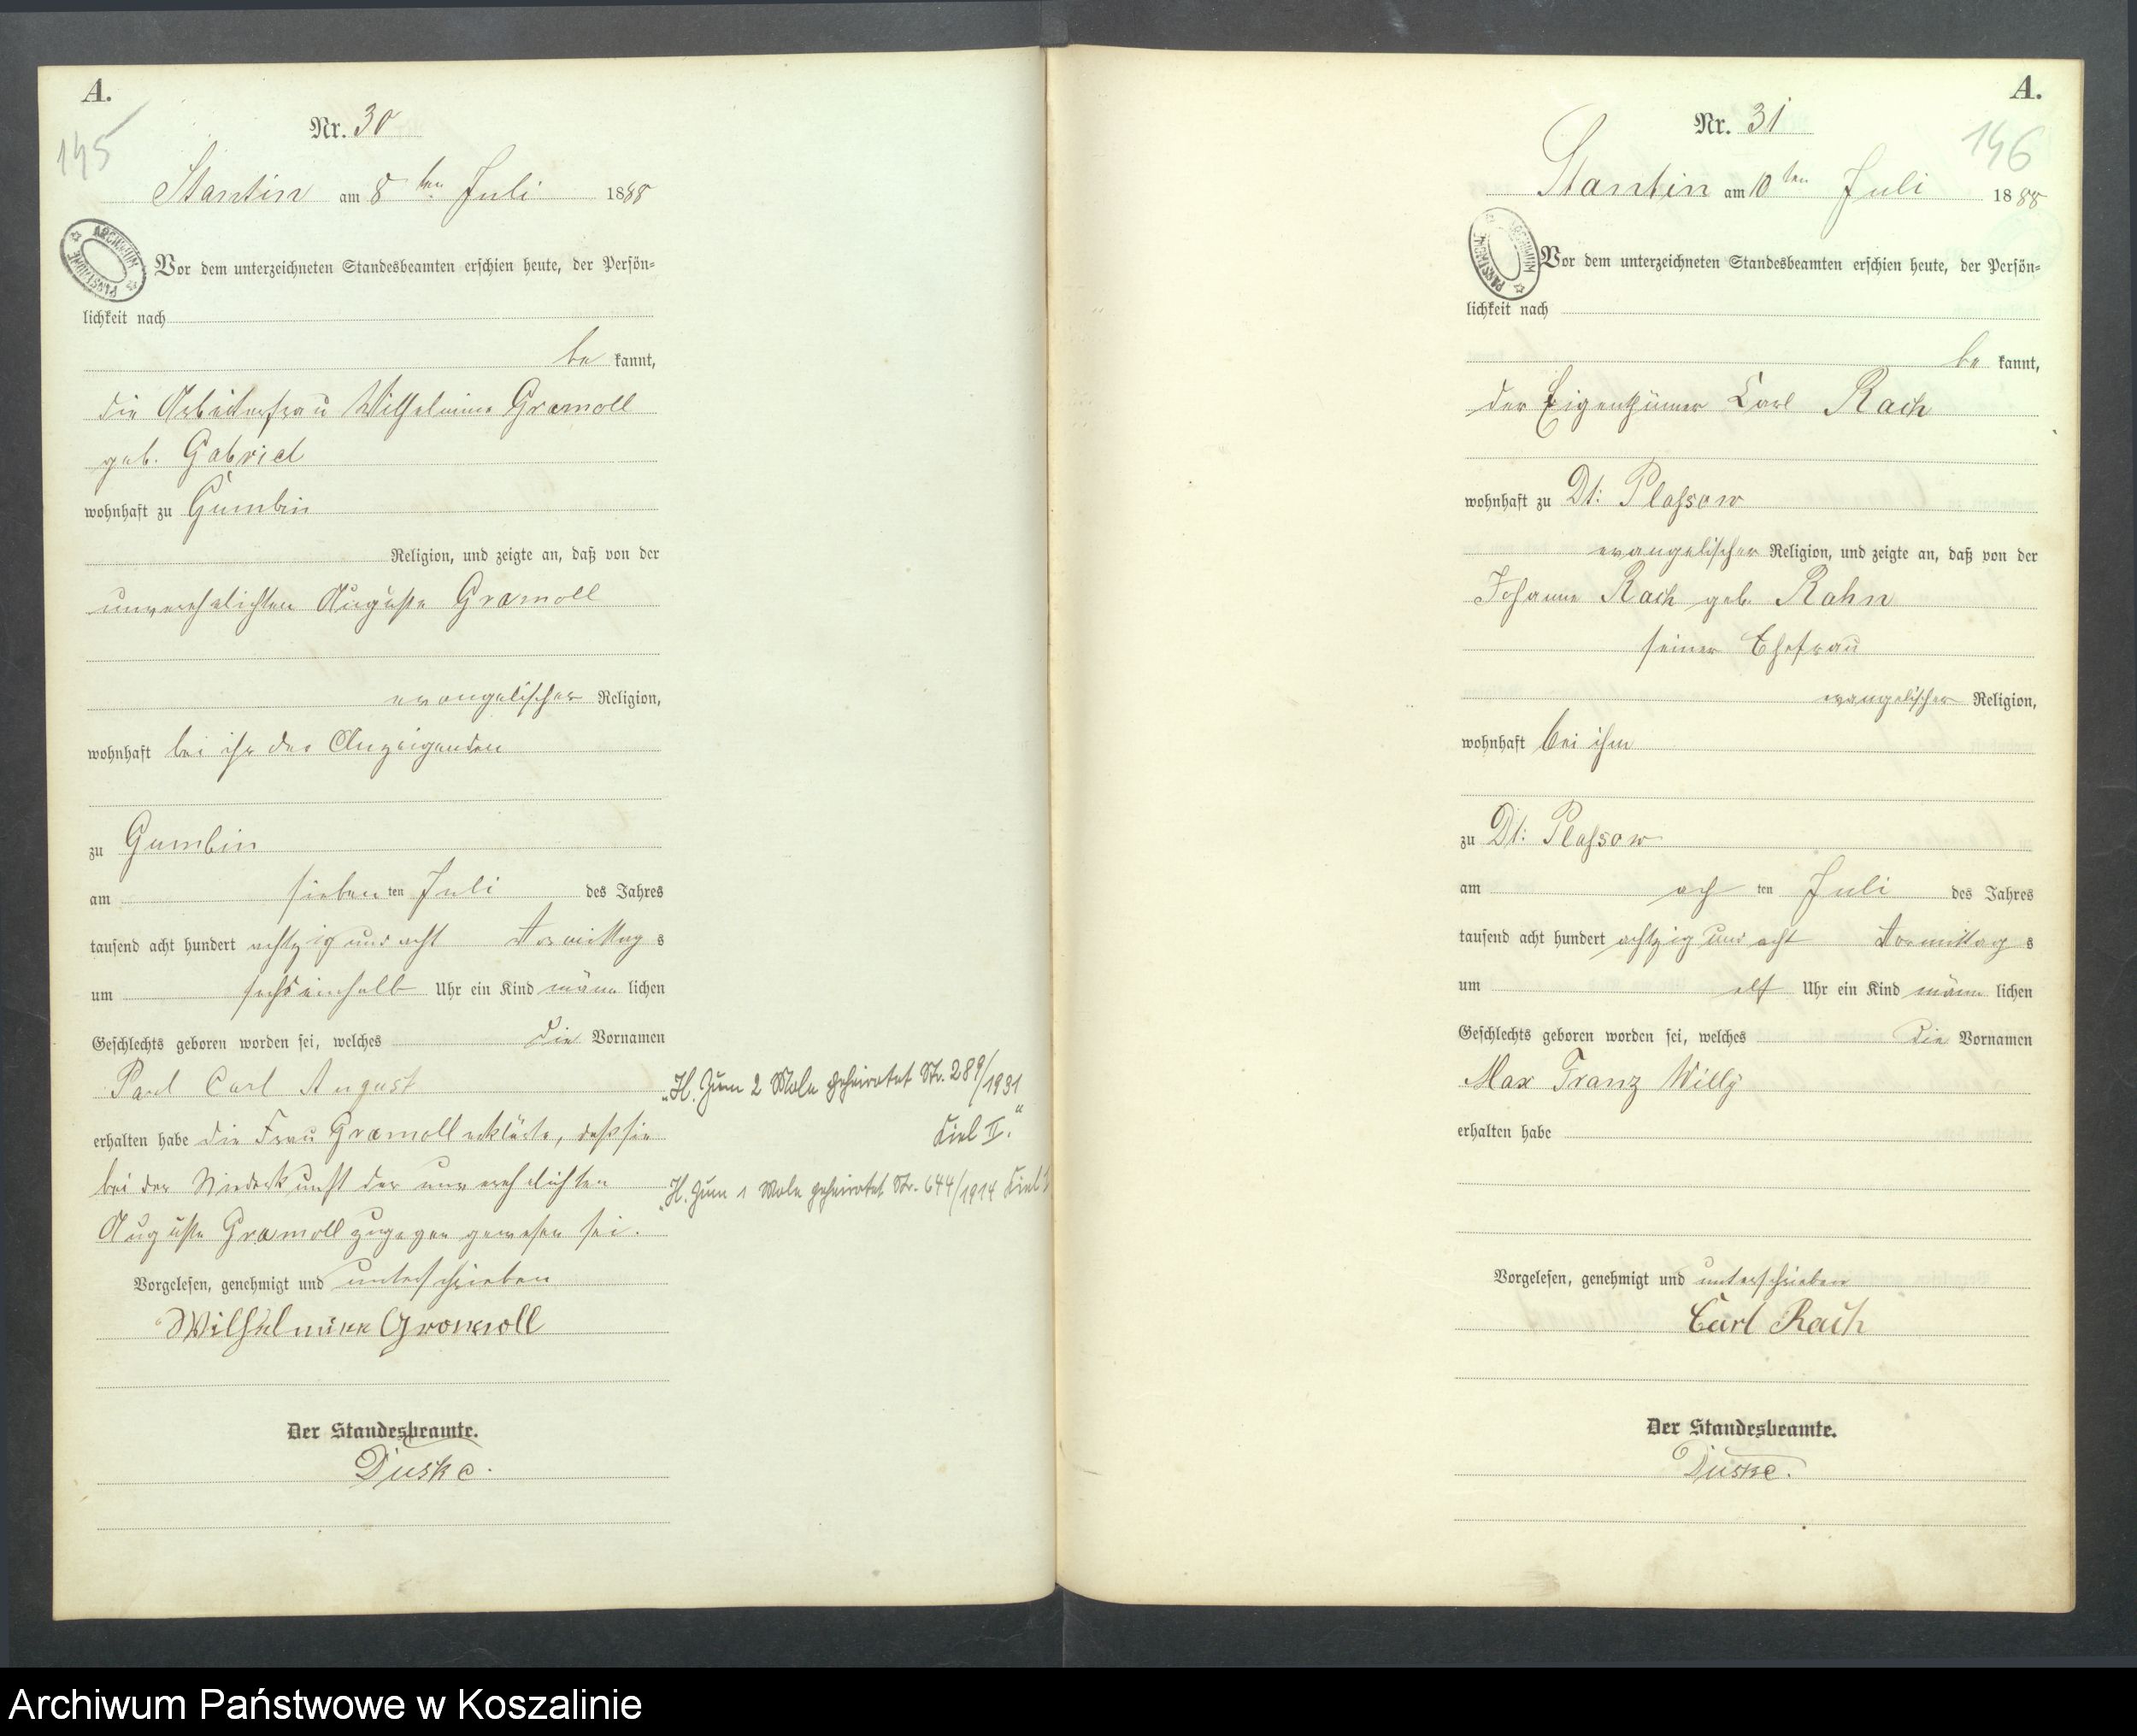 A.
145
Nr. 30
Stantin am 8ten Juli 1888
ARCHIWUM PAŃSTWOWE
Vor dem unterzeichneten Standesbeamten erschien heute, der Persön=
lichkeit nach
be kannt,
die Arbeiterfrau Wilhelmine Gramoll
geb. Gabriel
wohnhaft zu Gumbin
Religion, und zeigte an, daß von der
unverehelichten Auguste Gramoll
evangelischer Religion,
wohnhaft bei ihr der Anzeigenden
zu Gumbin
am siebenten Juli des Jahres
tausend acht hundert achtzig und acht Vormittags
um sechseinhalb Uhr ein Kind männlichen
Geschlechts geboren worden sei, welches die Vornamen
Paul Carl August
erhalten habe die Frau Gramoll erklärte, daß sie
bei der Niederkunft der unverehelichten
Auguste Gramoll zugegen gewesen sei.
Vorgelesen, genehmigt und unterschrieben
Wilhelmine Gramoll
Der Standesbeamte.
Düske.
"H. Zum 2 Male geheiratet Nr. 289/1931
Kiel II."
"H. Zum 1 Male geheiratet Nr. 644/1914 Kiel
A.
146
Nr. 31
Stantin am 10ten Juli 1888
ARCHIWUM PAŃSTWOWE
Vor dem unterzeichneten Standesbeamten erschien heute, der Persön=
lichkeit nach
be kannt,
der Eigenthümer Carl Rach
wohnhaft zu Dt: Plassow
evangelischer Religion, und zeigte an, daß von der
Johanne Rach geb. Rahn
seiner Ehefrau
evangelischer Religion,
wohnhaft bei ihm
zu Dt: Plassow
am achten Juli des Jahres
tausend acht hundert achtzig und acht Vormittags
um elf Uhr ein Kind männlichen
Geschlechts geboren worden sei, welches die Vornamen
Max Franz Willy
erhalten habe
Vorgelesen, genehmigt und unterschrieben
Carl Rach
Der Standesbeamte.
Düske.
Archiwum Państwowe w Koszalinie